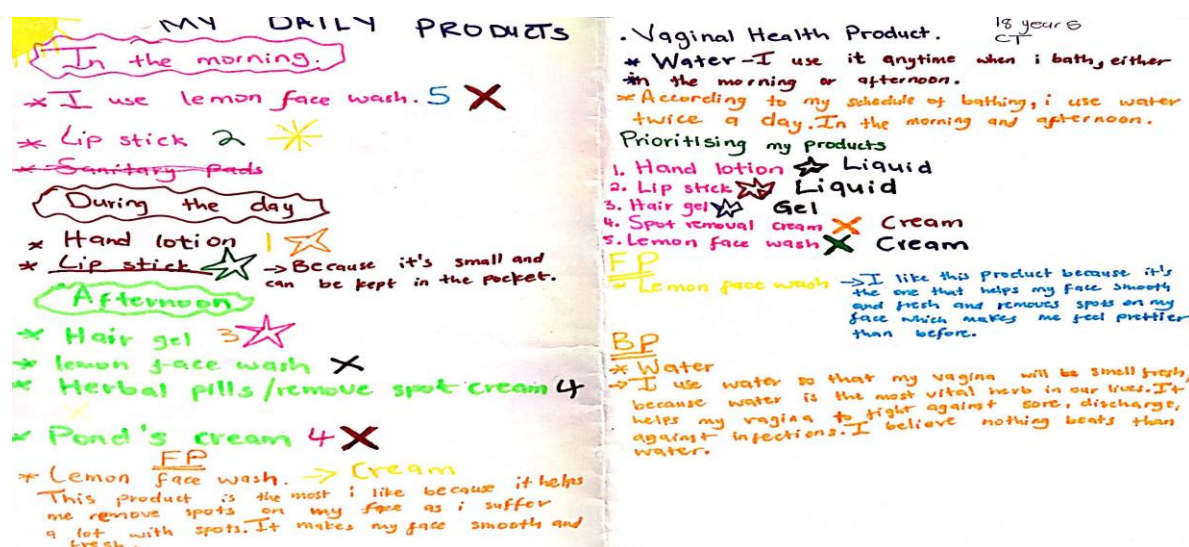 MY DAILY PRODUCTS
In the morning.
* I use lemon face wash. 5
* Lip stick 2
* Sanitary pads
During the day
* Hand lotion 1
* Lip stick → Because it's small and
can be kept in the pocket.
Afternoon
* Hair gel 3
* lemon face wash
* Herbal pills/remove spot cream 4
* Pond's cream 4
FP
* Lemon face wash. → Cream
This product is the most i like because it helps
me remove spots on my face as i suffer
a lot with spots. It makes my face smooth and
fresh.
18 years
CT
. Vaginal Health Product.
* Water - I use it anytime when i bath, either
*in the morning or afternoon.
* According to my schedule of bathing, i use water
twice a day. In the morning and afternoon.
Prioritising my products
1. Hand lotion Liquid
2. Lip stick Liquid
3. Hair gel Gel
4. Spot removal cream Cream
5. Lemon face wash Cream
FP
* Lemon face wash → I like this product because it's
the one that helps my face smooth
and fresh and removes spots on my
face which makes me feel prettier
than before.
BP
* Water
→ I use water so that my vagina will be smell fresh,
because water is the most vital herb in our lives. It
helps my vagina to fight against sore, discharge,
against infections. I believe nothing beats than
water.